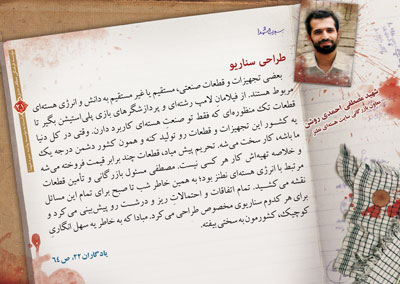 طراحی سناریو
بعضی تجهیزات و قطعات صنعتی، مستقیم یا غیر مستقیم به دانش و انرژی هسته‌ای
مربوط هستند. از فیلامان لامپ رشته‌ای و پردازشگرهای بازی پلی‌استیشن بگیر تا
قطعات تک منظوره‌ای که فقط تو صنعت هسته‌ای کاربرد دارن. وقتی در کل دنیا
یه کشور این تجهیزات و قطعات رو تولید کنه و همون کشور دشمن درجه یک
ما باشه، کار سخت می‌شه. تحریم پیش میاد، قطعات چند برابر قیمت فروخته می‌شه
و خلاصه تهیه‌اش کار هر کسی نیست. مصطفی مسئول بازرگانی و تأمین قطعات
مرتبط با انرژی هسته‌ای نطنز بود؛ به همین خاطر شب تا صبح برای تمام این مسائل
نقشه می کشید. تمام اتفاقات و احتمالاتِ ریز و درشت رو پیش‌بینی می کرد و
برای هر کدوم سناریوی مخصوص طراحی می کرد. مبادا که به خاطر یه سهل انگاریِ
کوچیک، کشورمون به سختی بیفته.
یادگاران ۲۲، ص ۶۴
شهید مصطفی احمدی روشن
معاون بازرگانی سایت هسته‌ای نطنز